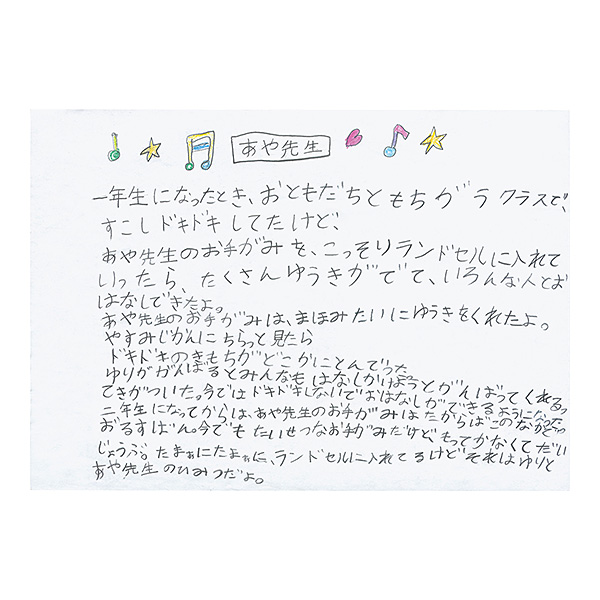 あや先生
一年生になったとき、おともだちともちがうクラスで、
すこしドキドキしてたけど、
あや先生のお手がみを、こっそりランドセルに入れて
いったら、たくさんゆうきがでて、いろんな人とお
はなしできたよ。
あや先生のお手がみは、まほみたいにゆうきをくれたよ。
やすみじかんにちらっと見たら
ドキドキのきもちがどこかにとんでった
ゆりががんばるとみんなもはなしかけようとがんばってくれるっ
てきがついた。今ではドキドキしないでおはなしができるようになった
二年生になってからは、あや先生のお手がみはたからばこのなかで
おるすばん。今でもたいせつなお手がみだけど、もってかなくてだい
じょうぶ。たまぁにたまぁに、ランドセルに入れてるけどそれはゆりと
あや先生のひみつだよ。